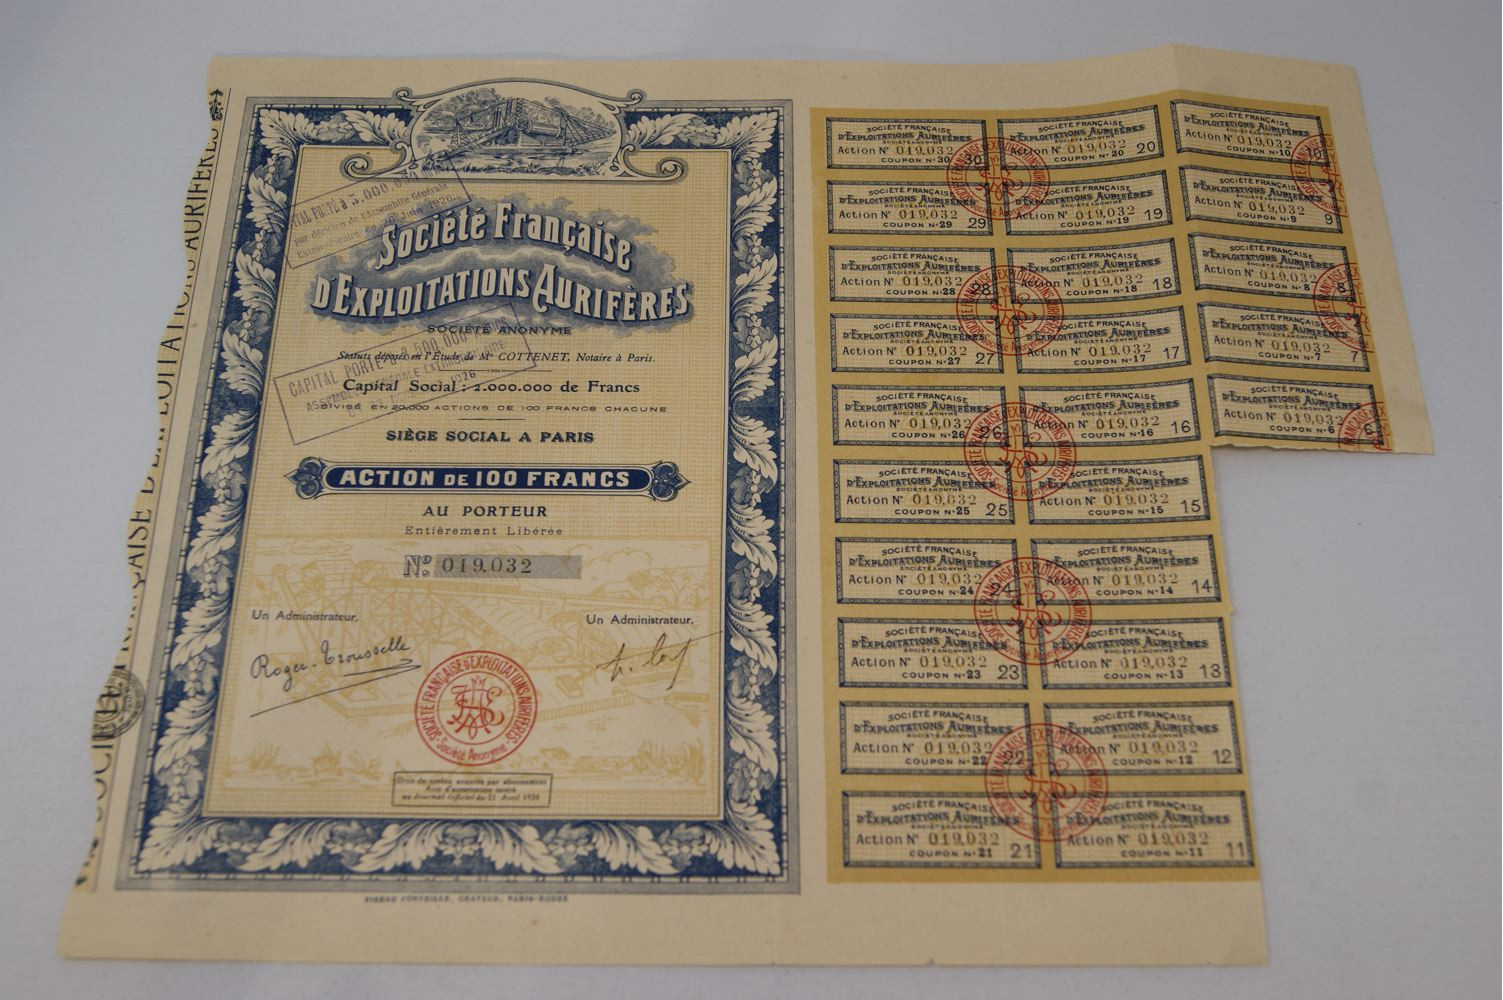 Société Française
d'Exploitations Aurifères
SOCIÉTÉ ANONYME
Statuts déposés en l'Étude de Me COTTENET, Notaire à Paris.
Capital Social : 2.000.000 de Francs
DIVISÉ EN 20.000 ACTIONS DE 100 FRANCS CHACUNE
SIÈGE SOCIAL A PARIS
ACTION DE 100 FRANCS
AU PORTEUR
Entièrement Libérée
No. 019,032
Un Administrateur. Un Administrateur.
Roger-Trousselle
SOCIÉTÉ FRANÇAISE D'EXPLOITATIONS AURIFÈRES
Société Anonyme
Droit de timbre acquitté par abonnement
Avis d'autorisation inséré
au Journal Officiel du 21 Avril 1926
par décision de l'Assemblée Générale
CAPITAL PORTÉ A
SOCIÉTÉ FRANÇAISE
D'EXPLOITATIONS AURIFÈRES
SOCIÉTÉ ANONYME
Action No 019,032
COUPON No 30 30
SOCIÉTÉ FRANÇAISE
D'EXPLOITATIONS AURIFÈRES
SOCIÉTÉ ANONYME
Action No 019,032
COUPON No 20 20
SOCIÉTÉ FRANÇAISE
D'EXPLOITATIONS AURIFÈRES
SOCIÉTÉ ANONYME
Action No 019,032
COUPON No 10 10
SOCIÉTÉ FRANÇAISE
D'EXPLOITATIONS AURIFÈRES
SOCIÉTÉ ANONYME
Action No 019,032
COUPON No 29 29
SOCIÉTÉ FRANÇAISE
D'EXPLOITATIONS AURIFÈRES
SOCIÉTÉ ANONYME
Action No 019,032
COUPON No 19 19
SOCIÉTÉ FRANÇAISE
D'EXPLOITATIONS AURIFÈRES
SOCIÉTÉ ANONYME
Action No 019,032
COUPON No 9 9
SOCIÉTÉ FRANÇAISE
D'EXPLOITATIONS AURIFÈRES
SOCIÉTÉ ANONYME
Action No 019,032
COUPON No 28 28
SOCIÉTÉ FRANÇAISE
D'EXPLOITATIONS AURIFÈRES
SOCIÉTÉ ANONYME
Action No 019,032
COUPON No 18 18
SOCIÉTÉ FRANÇAISE
D'EXPLOITATIONS AURIFÈRES
SOCIÉTÉ ANONYME
Action No 019,032
COUPON No 8 8
SOCIÉTÉ FRANÇAISE
D'EXPLOITATIONS AURIFÈRES
SOCIÉTÉ ANONYME
Action No 019,032
COUPON No 27 27
SOCIÉTÉ FRANÇAISE
D'EXPLOITATIONS AURIFÈRES
SOCIÉTÉ ANONYME
Action No 019,032
COUPON No 17 17
SOCIÉTÉ FRANÇAISE
D'EXPLOITATIONS AURIFÈRES
SOCIÉTÉ ANONYME
Action No 019,032
COUPON No 7 7
SOCIÉTÉ FRANÇAISE
D'EXPLOITATIONS AURIFÈRES
SOCIÉTÉ ANONYME
Action No 019,032
COUPON No 26 26
SOCIÉTÉ FRANÇAISE
D'EXPLOITATIONS AURIFÈRES
SOCIÉTÉ ANONYME
Action No 019,032
COUPON No 16 16
SOCIÉTÉ FRANÇAISE
D'EXPLOITATIONS AURIFÈRES
SOCIÉTÉ ANONYME
Action No 019,032
COUPON No 6 6
SOCIÉTÉ FRANÇAISE
D'EXPLOITATIONS AURIFÈRES
SOCIÉTÉ ANONYME
Action No 019,032
COUPON No 25 25
SOCIÉTÉ FRANÇAISE
D'EXPLOITATIONS AURIFÈRES
SOCIÉTÉ ANONYME
Action No 019,032
COUPON No 15 15
SOCIÉTÉ FRANÇAISE
D'EXPLOITATIONS AURIFÈRES
SOCIÉTÉ ANONYME
Action No 019,032
COUPON No 24 24
SOCIÉTÉ FRANÇAISE
D'EXPLOITATIONS AURIFÈRES
SOCIÉTÉ ANONYME
Action No 019,032
COUPON No 14 14
SOCIÉTÉ FRANÇAISE
D'EXPLOITATIONS AURIFÈRES
SOCIÉTÉ ANONYME
Action No 019,032
COUPON No 23 23
SOCIÉTÉ FRANÇAISE
D'EXPLOITATIONS AURIFÈRES
SOCIÉTÉ ANONYME
Action No 019,032
COUPON No 13 13
SOCIÉTÉ FRANÇAISE
D'EXPLOITATIONS AURIFÈRES
SOCIÉTÉ ANONYME
Action No 019,032
COUPON No 22 22
SOCIÉTÉ FRANÇAISE
D'EXPLOITATIONS AURIFÈRES
SOCIÉTÉ ANONYME
Action No 019,032
COUPON No 12 12
SOCIÉTÉ FRANÇAISE
D'EXPLOITATIONS AURIFÈRES
SOCIÉTÉ ANONYME
Action No 019,032
COUPON No 21 21
SOCIÉTÉ FRANÇAISE
D'EXPLOITATIONS AURIFÈRES
SOCIÉTÉ ANONYME
Action No 019,032
COUPON No 11 11